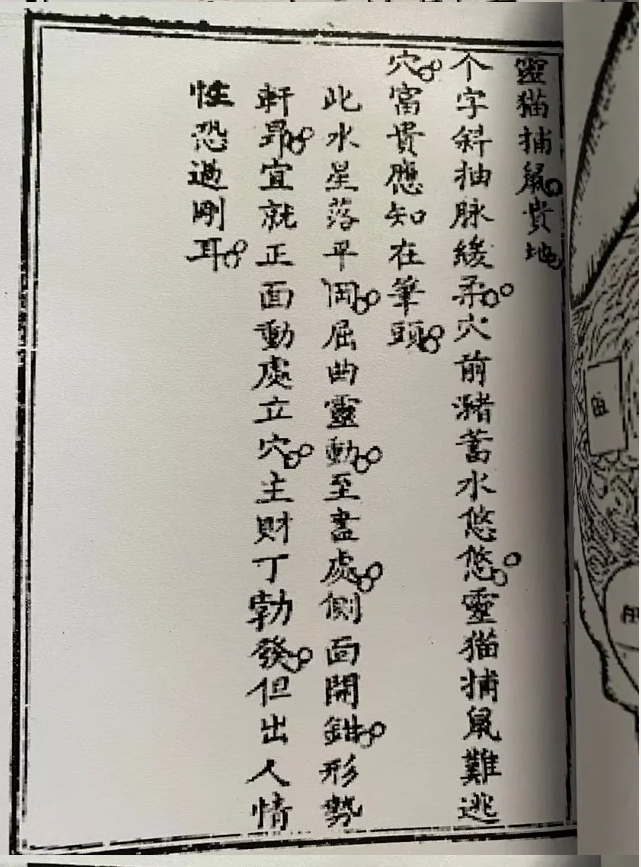 靈猫捕鼠。貴地。
个字斜抽脉緩柔。穴前瀦蓄水悠悠。靈猫捕鼠難逃
穴。富貴應知在筆頭。
此水星落平岡。屈曲靈動。至盡處。側面開鉗。形勢
軒昂。宜就正面動處立穴。主財丁勃發。但出人情
性恐過剛耳。